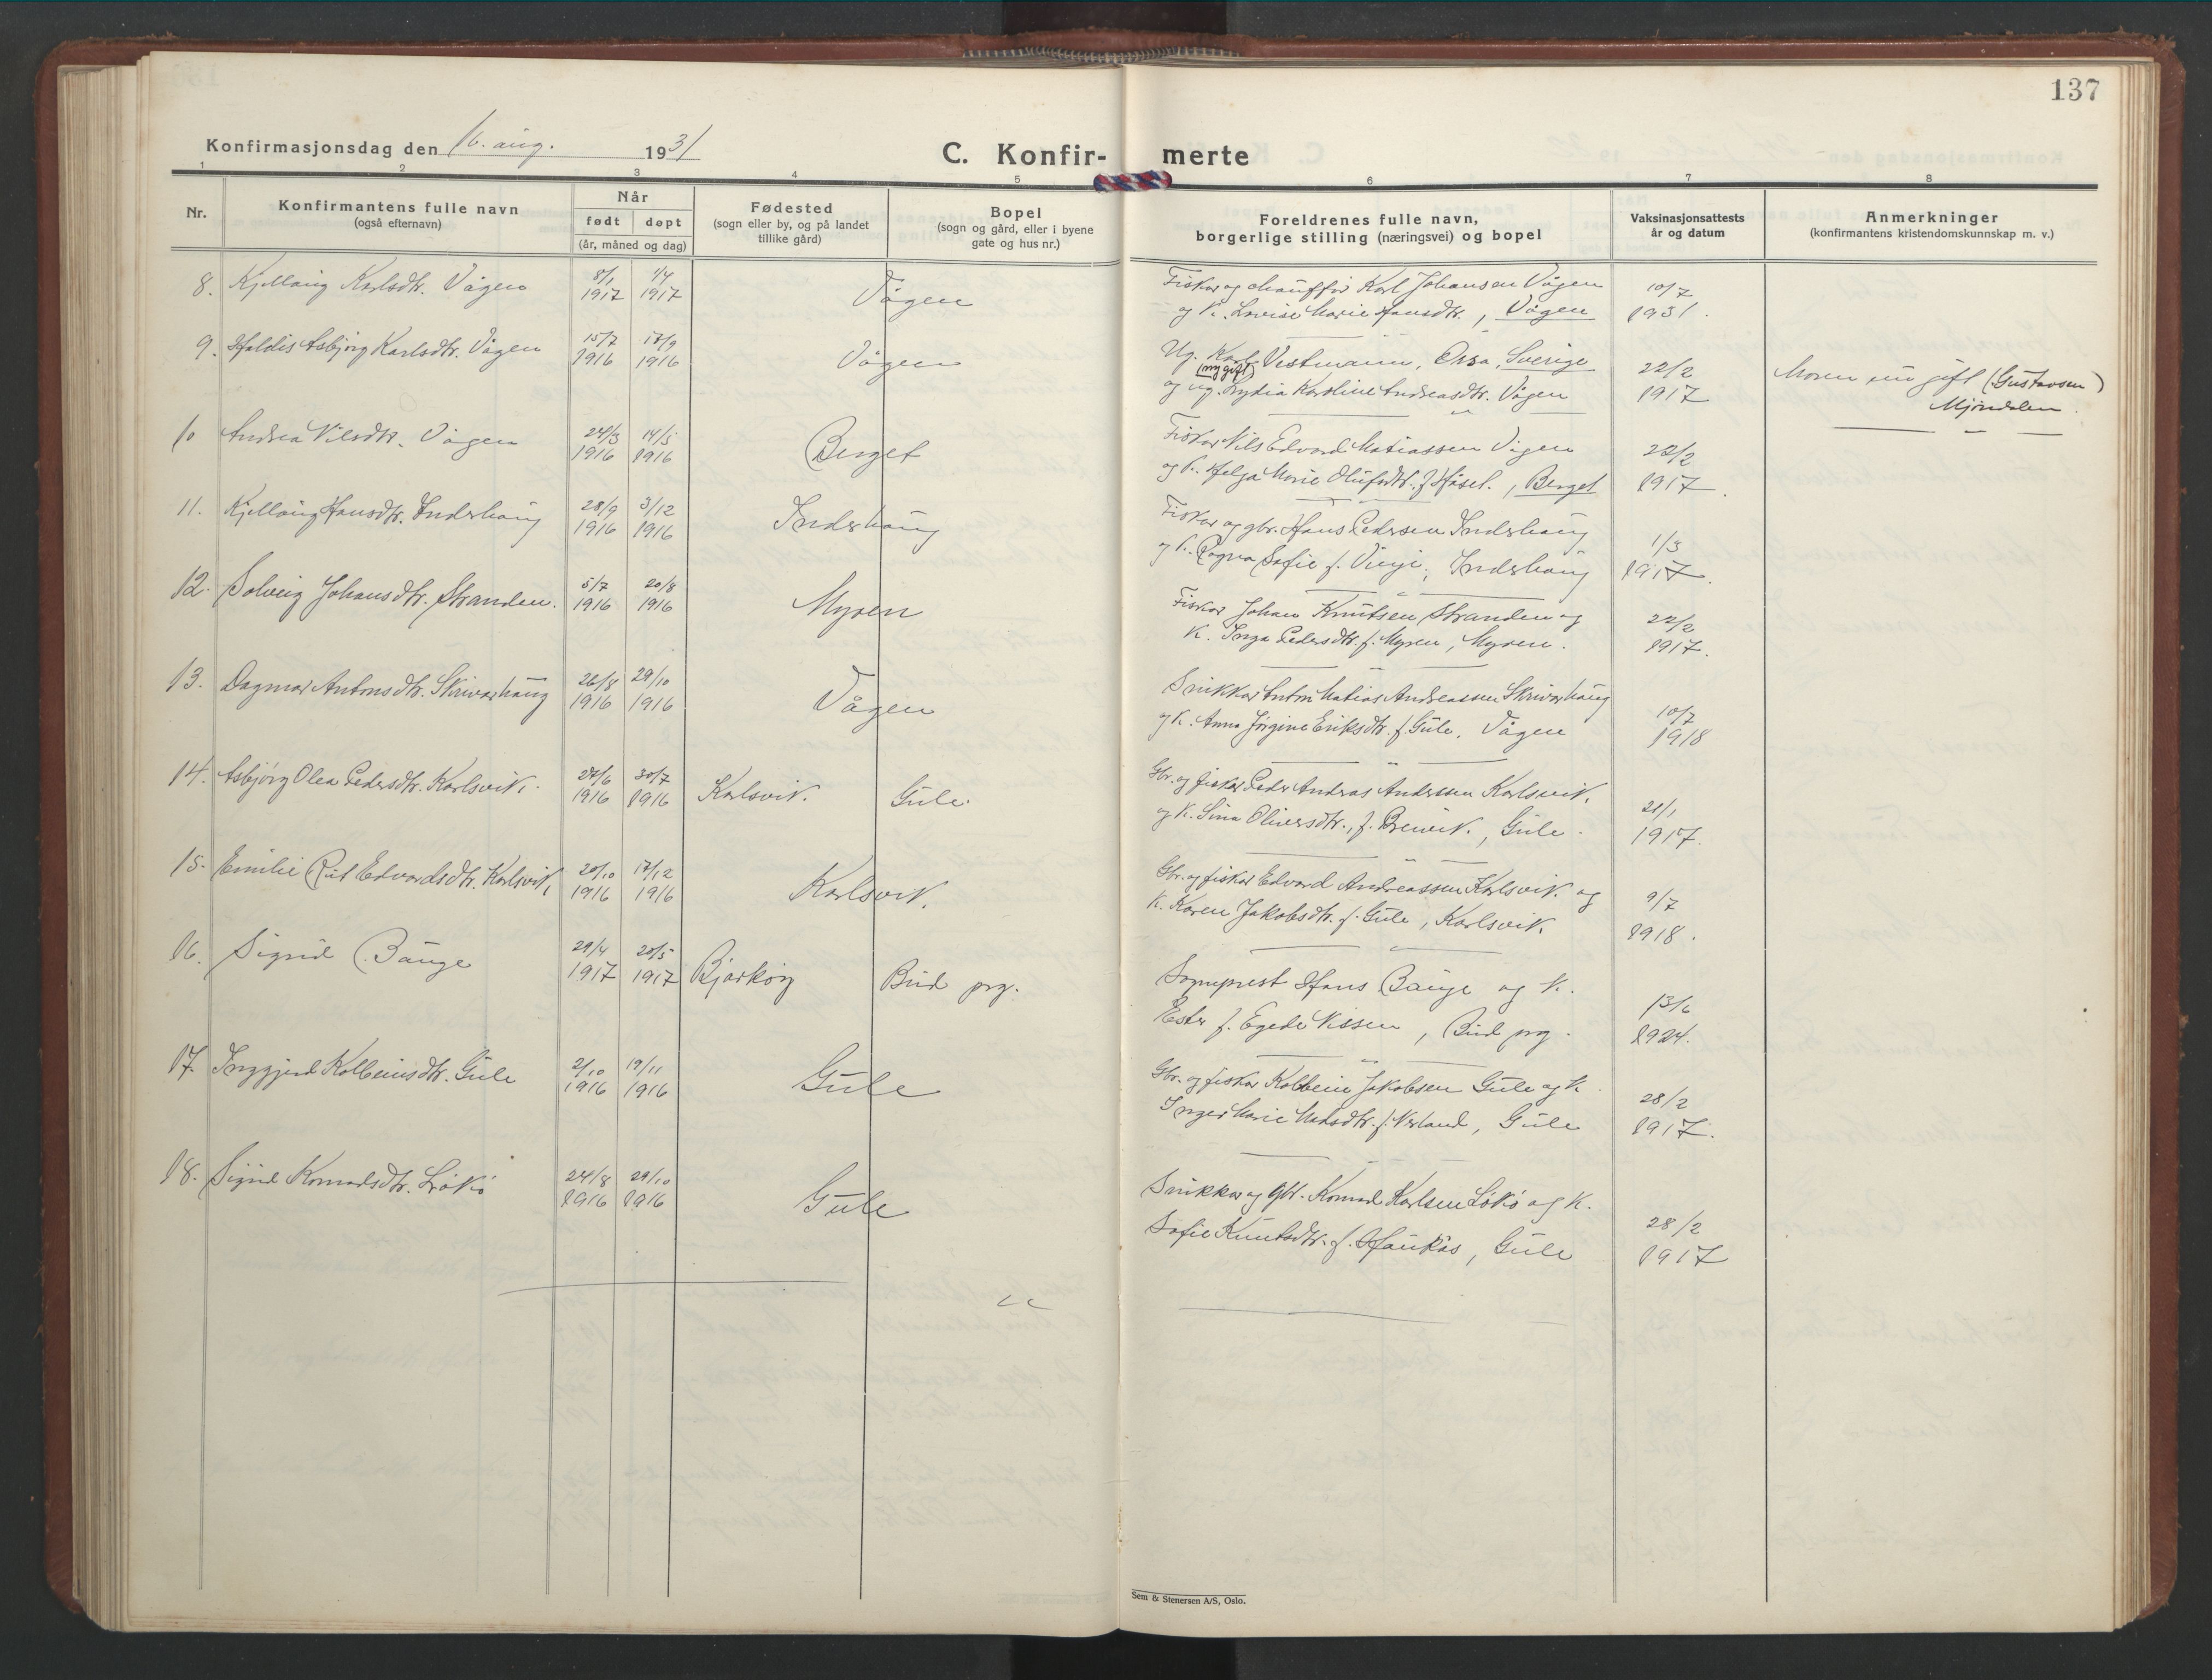 137
Konfirmasjonsdag den 16. aug. 1931
C. Konfir- merte
1 2 3 4 5 6 7 8
Nr.
Konfirmantens fulle navn
(også efternavn)
Når
født døpt
(år, måned og dag)
Fødested
(sogn eller by, og på landet
tillike gård)
Bopel
(sogn og gård, eller i byene
gate og hus nr.)
Foreldrenes fulle navn,
borgerlige stilling (næringsvei) og bopel
Vaksinasjonsattests
år og datum
Anmerkninger
(konfirmantens kristendomskunnskap m. v.)
8. Kjellaug Karlsdtr. Vågen 8/1 1917 1/4 1917 Vågen
Fisker og chauffør Karl Johansen Vågen 10/7
og k. Lovise Marie Hansdtr., Vågen 1931.
9. Haldis Asbjørg Karlsdtr. Vågen 15/7 1916 17/9 1916 Vågen
Ug. Karl Vestmann, Orsa, Sverige 22/2
(nu gift)
og ug. Lydia Karoline Andreasdtr. Vågen 1917
Moren nu gift (Gustavsen)
Mjøndalen.
10 Andrea Nilsdtr. Vågen 24/3 1916 14/5 1916 Berget
Fisker Nils Edvard Matiassen Vågen 22/2
og k. Helga Marie Olufsdtr. f. Håsel., Berget 1917.
11. Kjellaug Hansdtr. Inderhaug 28/9 1916 3/12 1916 Inderhaug
Fisker og gbr. Hans Pedersen Inderhaug 1/3
og k. Ragna Sofie f. Vinje, Inderhaug 1917.
12. Solveig Johansdtr. Stranden. 5/7 1916 20/8 1916 Myren
Fisker Johan Knutsen Stranden og 22/2
k. Inga Pedersdtr. f. Myren, Myren. 1917.
13. Dagmar Antonsdtr. Skrivarhaug 26/8 1916 29/10 1916 Vågen
Snikker Anton Matias Andreassen Skrivarhaug 10/7
og k. Anna Jørgine Eriksdtr. f. Gule, Vågen 1918
14. Asbjørg Olea Pedersdtr. Karlsvik. 27/6 1916 30/7 1916 Karlsvik. Gule.
Gbr. og fisker Peder Andreas Andersen Karlsvik. 21/1
og k. Lina Oliversdtr., f. Breivik., Gule. 1917.
15. Emilie Rut Edvardsdtr. Karlsvik. 20/10 1916 17/12 1916 Karlsvik.
Gbr. og fisker Edvard Andreassen Karlsvik. og 9/7
k. Karen Jakobsdtr. f. Gule, Karlsvik. 1918.
16. Sigrid Bauge 29/4 1917 20/5 1917 Bjarkøy Bud prg.
Sogneprest Hans Bauge og k. 13/6
Ester f. Egede Nissen, Bud prg. 1924.
17. Inggjerd Kolbeinsdtr. Gule 2/10 1916 19/11 1916 Gule
Gbr. og fisker Kolbein Jakobsen Gule og k. 28/2
Inger Marie Madsdtr. f. Nerland, Gule 1917.
18. Sigrid Konradsdtr. Løkø 24/8 1916 29/10 1916 Gule
Snikker og gbr. Konrad Karlsen Løkø og k. 28/2
Sofie Knutsdtr. f. Haukås, Gule 1917
Sem & Stenersen A/S, Oslo.